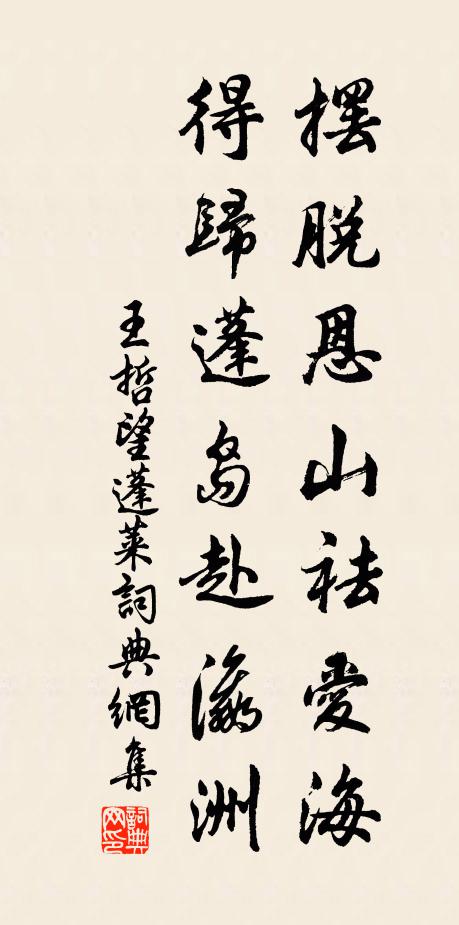 擺脫恩山祛愛海
得歸蓬島赴瀛洲
王哲望蓬萊詞典網集
詞典
网印